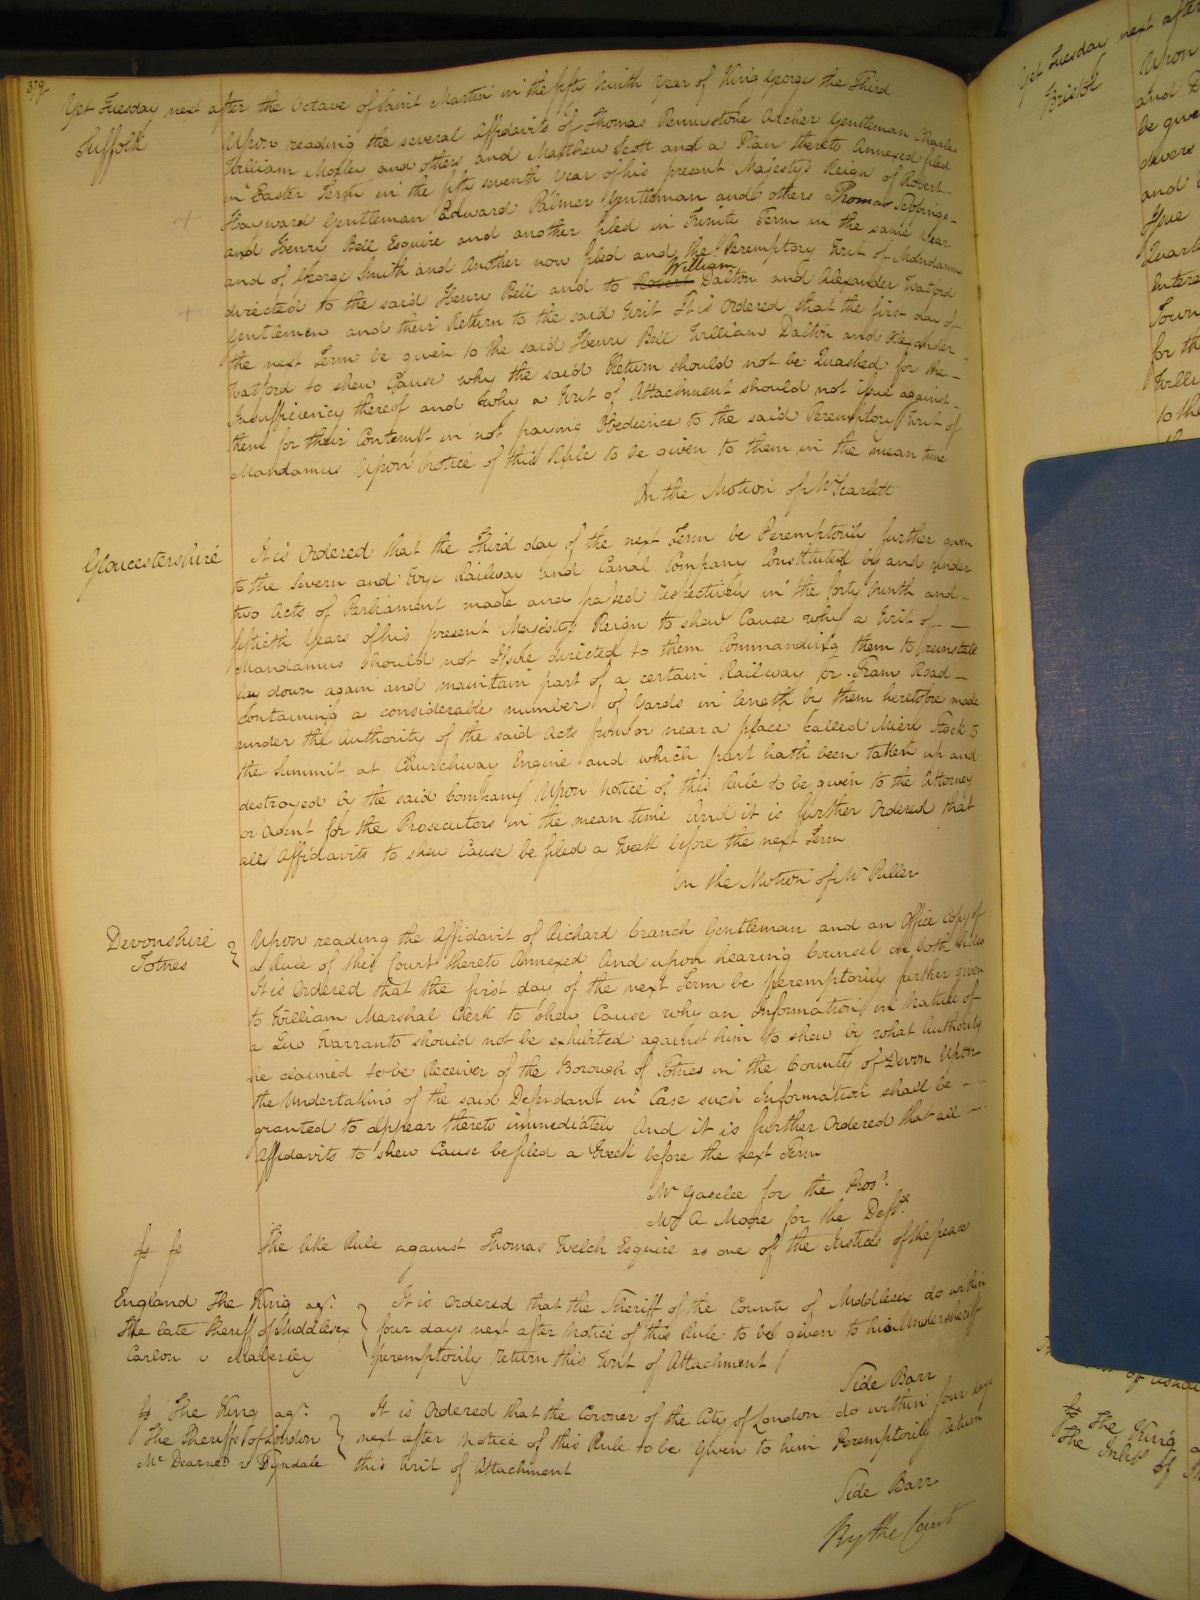 379
Yet Tuesday next after the Octave of Saint Martin in the fifty ninth Year of King George the Third
Suffolk
Upon reading the several Affidavits of Thomas Pennystone Archer Gentleman Charles
William Moxley and others and Matthew Scott and a Plan thereto Annexed filed
in Easter Term in the fifty seventh Year of his present Majesty's Reign of Robert
Hayward Gentleman Edward Palmer Gentleman and others Thomas
and Henry Bell Esquire and another filed in Trinity Term in the same Year
and of George Smith and Another now filed and the Peremptory Writ of Mandamus
William
directed to the said Henry Bell and to Robert Dalton and Alexander Watford
Gentlemen and their Return to the said Writ It is Ordered that the first day of
the next Term be given to the said Henry Bell William Dalton and Alexander
Watford to shew Cause why the said Return should not be Quashed for the
Insufficiency thereof and why a Writ of Attachment should not issue against
them for their Contempt in not paying Obedience to the said Peremptory Writ of
Mandamus Upon Notice of this Rule to be given to them in the mean time
On the Motion of Mr Scarlett
Gloucestershire
It is Ordered that the Third day of the next Term be Peremptorily further given
to the Severn and Wye Railway and Canal Company Constituted by and under
two Acts of Parliament made and passed respectively in the forty ninth and
fiftieth Years of his present Majestys Reign to shew Cause why a Writ of
Mandamus should not Issue directed to them Commanding them to reinstate
lay down again and maintain part of a certain Railway or Tram Road
Containing a considerable number of Yards in length by them heretofore made
under the Authority of the said Acts from or near a place called Miery Stock to
the Summit at Churchway Engine and which part hath been taken up and
destroyed by the said Company Upon Notice of this Rule to be given to the Attorney
or Agent for the Prosecutors in the mean time And it is further Ordered that
all Affidavits to shew Cause be filed a Week before the next Term
On the Motion of Mr Puller
Devonshire
Totnes
Upon reading the Affidavit of Richard Cranch Gentleman and an Office Copy of
a Rule of this Court thereto Annexed And upon hearing Counsel on both sides
It is Ordered that the first day of the next Term be peremptorily further given
to William Marshal Clerk to shew Cause why an Information in Nature of
a Quo Warranto should not be exhibited against him to shew by what Authority
he claimed to be Receiver of the Borough of Totnes in the County of Devon Upon
the Undertaking of the said Defendant in Case such Information shall be
granted to Appear thereto immediately And it is further Ordered that all
Affidavits to shew Cause be filed a Week before the next Term
Mr Gaselee for the Pros.
Mr A Moore for the Deft.
The like Rule against Thomas Welch Esquire as one of the Justices of the peace
England The King agt.
the late Sheriff of Middlesex
Carlon v Maberley
It is Ordered that the Sheriff of the County of Middlesex do within
four days next after Notice of this Rule to be given to his Undersheriff
peremptorily Return this Writ of Attachment
Side Barr
The King agt.
The Sheriffs of London
Mc Dearned v Tyndale
It is Ordered that the Coroner of the City of London do within four days
next after Notice of this Rule to be Given to him Peremptorily return
this Writ of Attachment
Side Barr
By the Court
Yet Tuesday next after
Bristol
Upon
and
be given
divers
and
Issue
Quart
Intere
Town
for th
Willi
to the
The King
the Inhts of